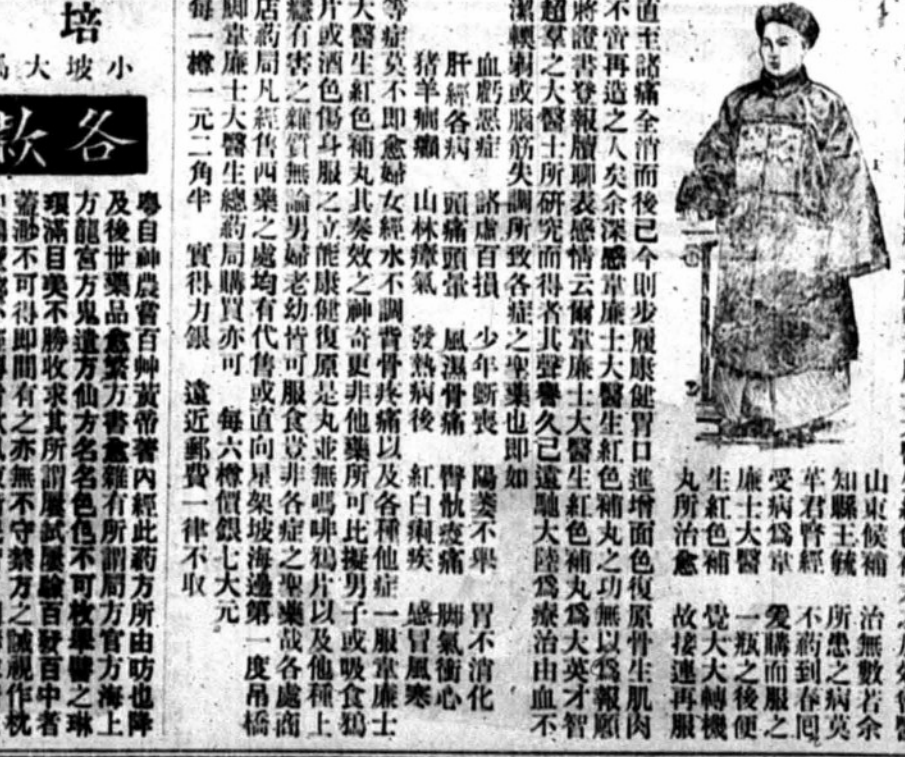 山東候補
知縣王毓
苹君腎經
受病爲韋
廉士大醫
生紅色補
丸所治愈
治無數若余
所患之病莫
不葯到春囘
爰購而服之
一瓶之後便
覺大大轉機
故接連再服
直至諸痛全消而後已今則步履康健胃口進增面色復原骨生肌肉
不啻再造之人矣余深感韋廉士大醫生紅色補丸之功無以爲報願
將證書登報牘聊表感情云爾韋廉士大醫生紅色補丸爲大英才智
超羣之大醫士所研究而得者其聲譽久已遠馳大陸爲療治由血不
潔輭弱或腦筋失調所致各症之聖藥也即如
血虧惡症 諸虛百損 少年斲喪 陽萎不舉 胃不消化
肝經各病 頭痛頭暈 風濕骨痛 臀骩痠痛 脚氣衝心
猪羊癇癲 山林瘴氣 發熱病後 紅白痢疾 感冒風寒
等症莫不即愈婦女經水不調背骨疼痛以及各種他症一服韋廉士
大醫生紅色補丸其奏效之神奇更非他藥所可比擬男子或吸食鴉
片或酒色傷身服之立能康健復原是丸並無嗎啡鴉片以及他種上
癮有害之雜質無論男婦老幼皆可服食豈非各症之聖藥哉各處商
店葯局凡經售西藥之處均有代售或直向星架坡海邊第一度吊橋
脚韋廉士大醫生總葯局購買亦可 每六樽價銀七大元
每一樽一元二角半 實得力銀 遠近郵費一律不取
培
小坡大馬
各款
粵自神農嘗百艸黃帝著內經此葯方所由昉也降
及後世藥品愈繁方書愈雜有所謂局方官方海上
方龍宮方鬼遺方仙方名名色色不可枚舉醫之琳
瑯滿目美不勝收求其所謂屢試屢驗百發百中者
蓋渺不可得即間有之亦無不守禁方之誡視作枕